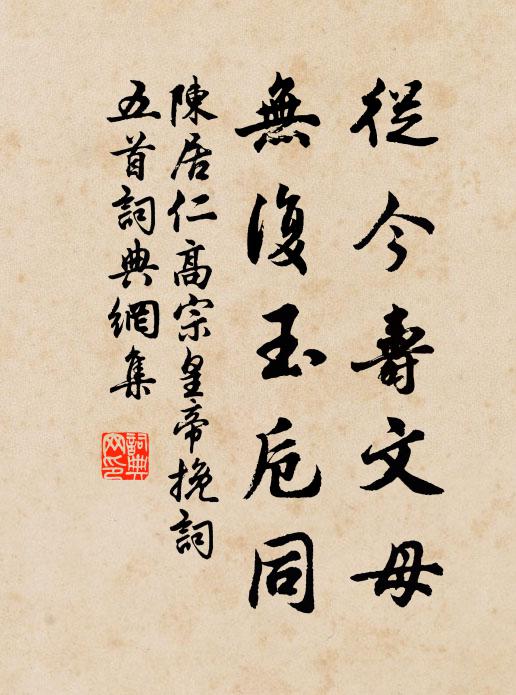 從今壽文母
無復玉卮同
陳居仁高宗皇帝挽詞
五首詞典網集
詞典
网印